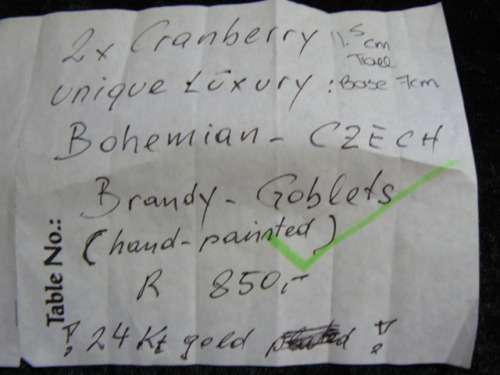 2x Cranberry
unique Lúxury :
1.5 cm
Tall
Base 7cm
Bohemian - CZECH
Brandy - Goblets
(hand-painted)
R 850,-
! 24 Kt gold !
Table No.: